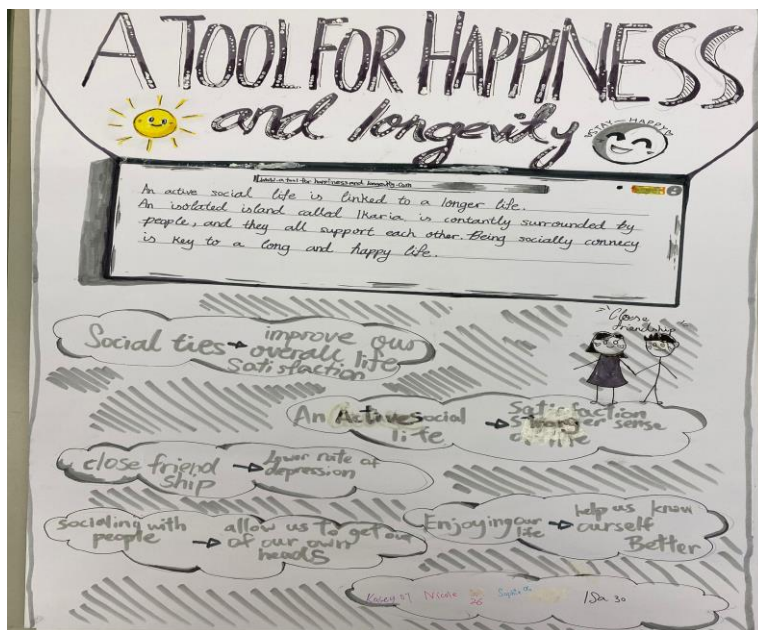 A TOOL FOR HAPPINESS
and longevity
STAY-HAPPY
An active social life is linked to a longer life.
An isolated island called Ikaria is contantly surrounded by
people, and they all support each other. Being socially connecy
is key to a long and happy life.
Close
friendship
Social ties → improve our
overall life
Satisfaction
An Active social → Satisfaction
life
close friend → lower rate of
ship depression
socialing with → allow us to get out
people of our own
heads
Enjoying our → help us know
life ourself
Better
Kasey 07 Nicole 26 30